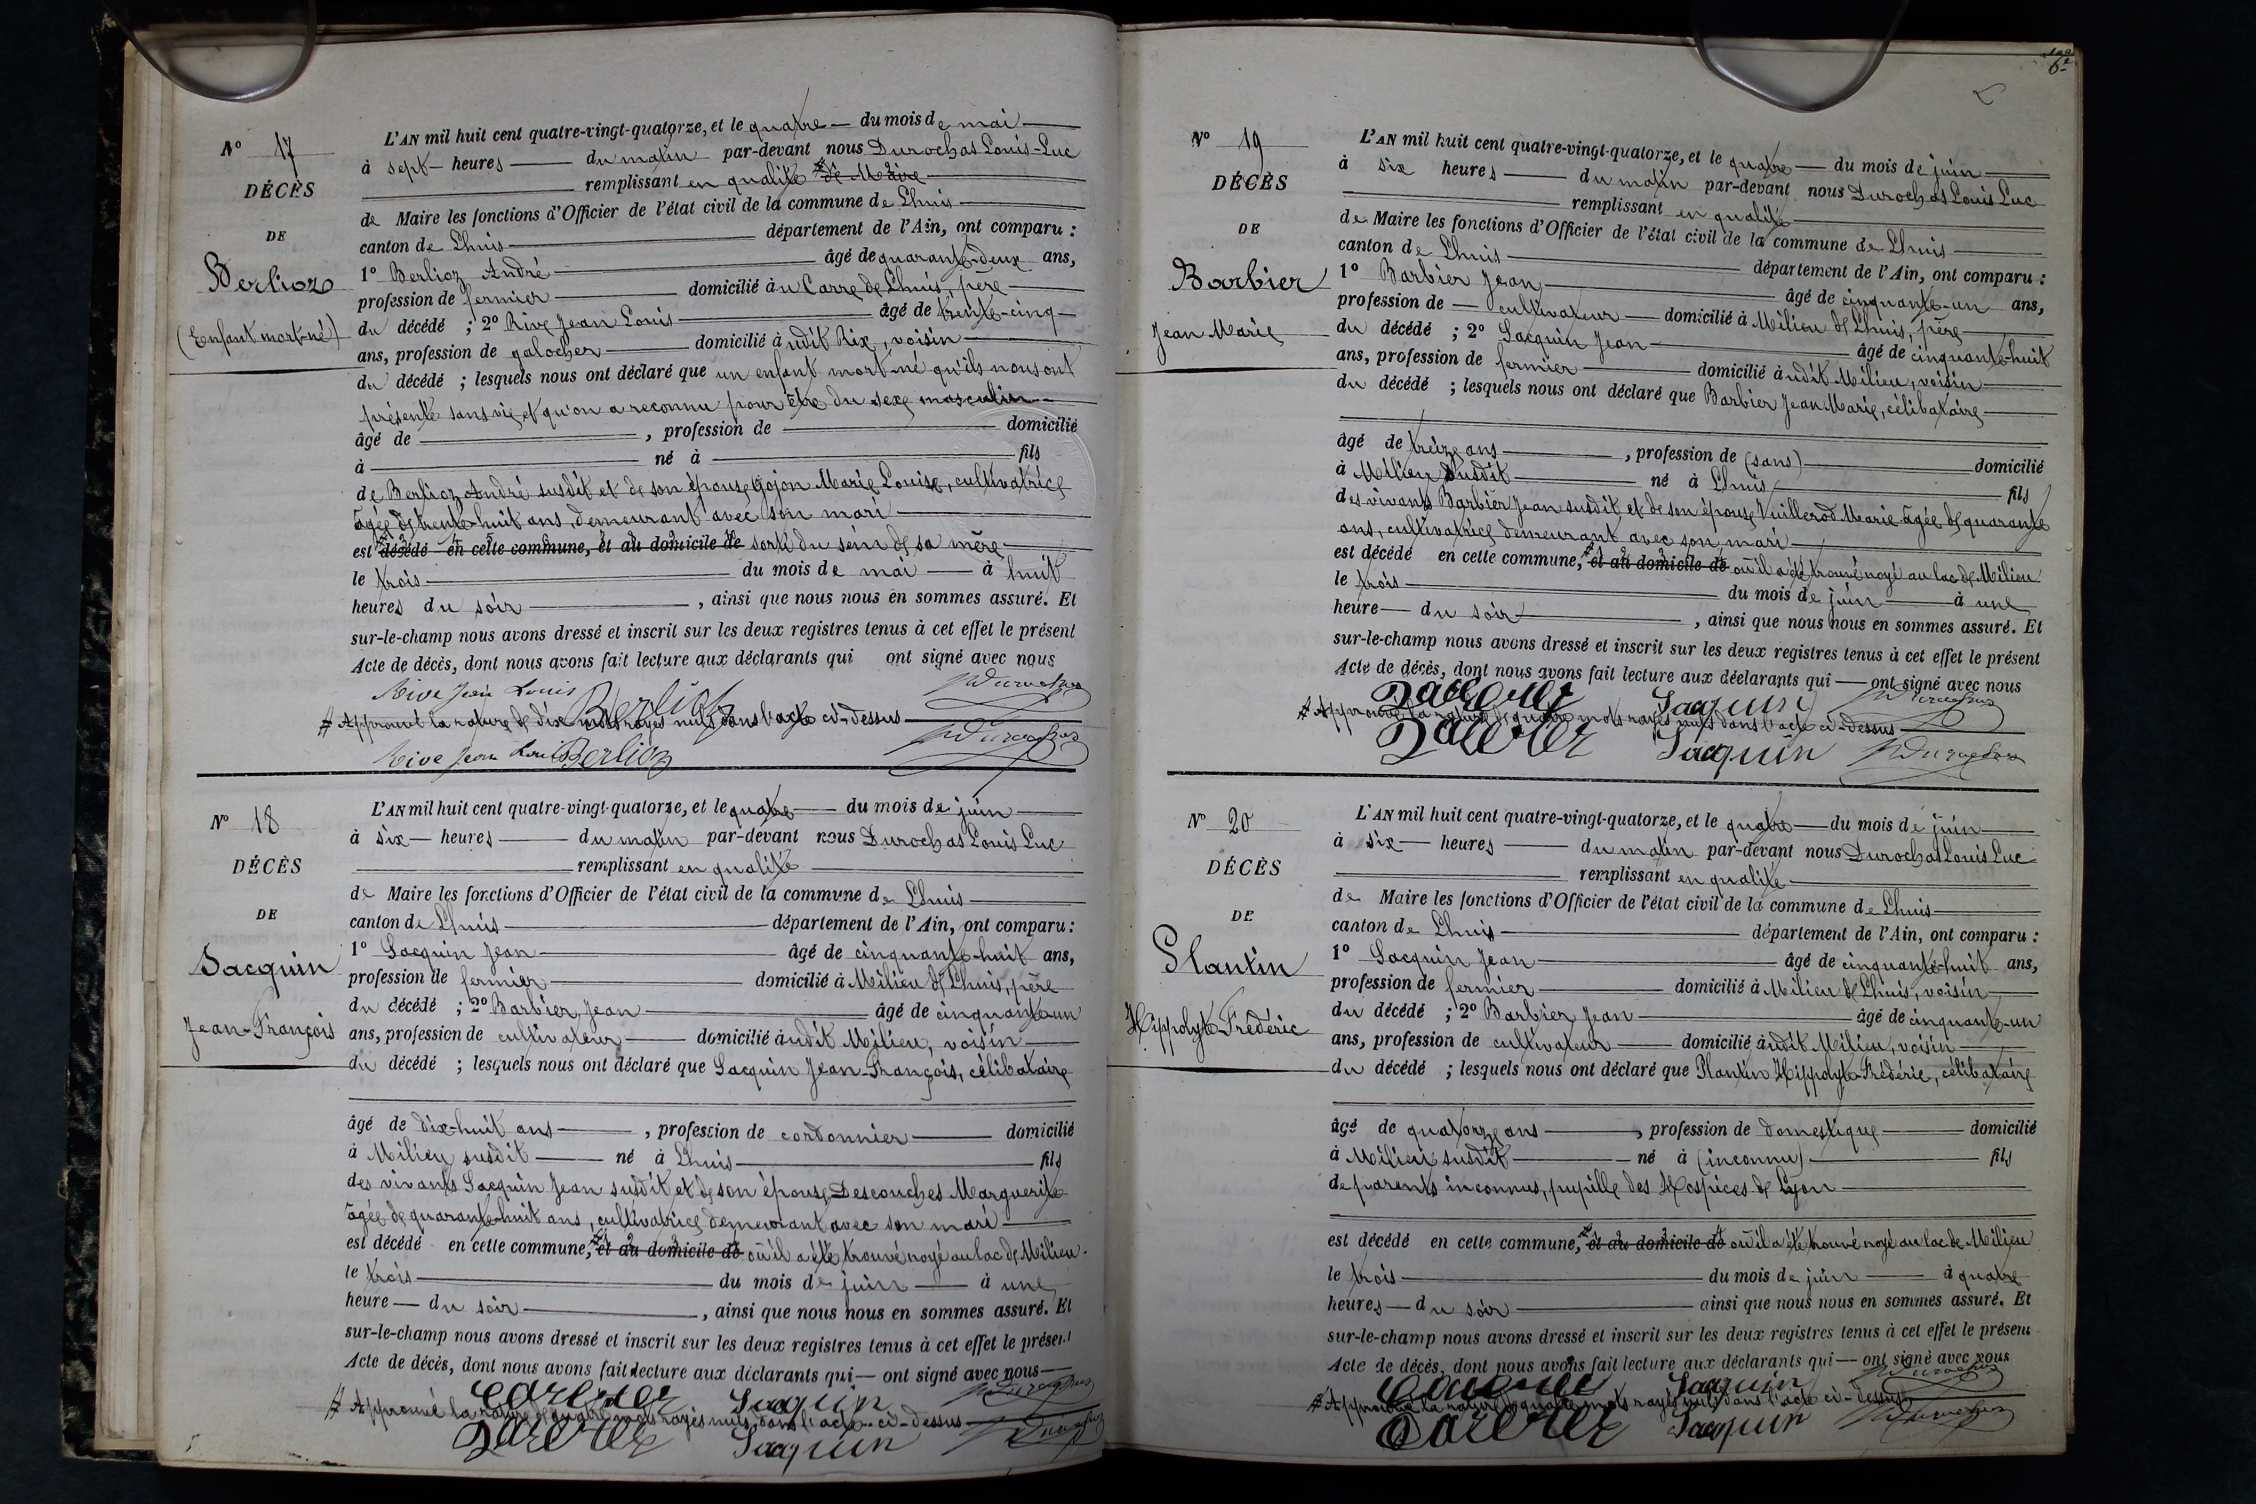 Nº 17
DÉCÈS
DE
Berlioz
(Enfant mort-né)
L'AN mil huit cent quatre-vingt-quatorze, et le quatre du mois de mai
à sept heures du matin par-devant nous Durochat Louis-Luc
remplissant en qualité de Maire
de Maire les fonctions d'Officier de l'état civil de la commune de Lhuis
canton de Lhuis département de l'Ain, ont comparu :
1º Berlioz André âgé de quarante-deux ans,
profession de fermier domicilié à u Carre de Lhuis, père
du décédé ; 2º Rive Jean Louis âgé de trente-cinq
ans, profession de galocher domicilié à udit Rix, voisin
du décédé ; lesquels nous ont déclaré que un enfant mort né qu'ils nous ont
présenté sans vie et qu'on a reconnu pour être du sexe masculin
âgé de , profession de domicilié
à né à fils
de Berlioz André susdit et de son épouse Gojon Marie Louise, cultivatrice
âgée de trente-huit ans, demeurant avec son mari
est décédé en cette commune, et au domicile de sorti du sein de sa mère
le trois du mois de mai à huit
heures du soir , ainsi que nous nous en sommes assuré. Et
sur-le-champ nous avons dressé et inscrit sur les deux registres tenus à cet effet le présent
Acte de décès, dont nous avons fait lecture aux déclarants qui ont signé avec nous
Rive Jean Louis Berlioz Durochat
# Approuvé la rature de dix mots rayés nuls dans l'acte ci-dessus
Rive Jean Louis Berlioz Durochat
Nº 18
DÉCÈS
DE
Jacquin
Jean-François
L'AN mil huit cent quatre-vingt-quatorze, et le quatre du mois de juin
à six heures du matin par-devant nous Durochat Louis Luc
remplissant en qualité
de Maire les fonctions d'Officier de l'état civil de la commune de Lhuis
canton de Lhuis département de l'Ain, ont comparu :
1º Jacquin Jean âgé de cinquante-huit ans,
profession de fermier domicilié à Milieu de Lhuis, père
du décédé ; 2º Barbier Jean âgé de cinquante-un
ans, profession de cultivateur domicilié à udit Milieu, voisin
du décédé ; lesquels nous ont déclaré que Jacquin Jean-François, célibataire
âgé de dix-huit ans , profession de cordonnier domicilié
à Milieu susdit né à Lhuis fils
des vivants Jacquin Jean susdit et de son épouse Descouches Marguerite
âgée de quarante-huit ans, cultivatrice demeurant avec son mari
est décédé en cette commune, et au domicile de où il a été trouvé noyé au lac de Milieu
le trois du mois de juin à une
heure du soir , ainsi que nous nous en sommes assuré. Et
sur-le-champ nous avons dressé et inscrit sur les deux registres tenus à cet effet le présent
Acte de décès, dont nous avons fait lecture aux déclarants qui ont signé avec nous
Barbier Jacquin Durochat
# Approuvé la rature de quatre mots rayés nuls dans l'acte ci-dessus
Barbier Jacquin Durochat
6e
Nº 19
DÉCÈS
DE
Barbier
Jean Marie
L'AN mil huit cent quatre-vingt-quatorze, et le quatre du mois de juin
à six heures du matin par-devant nous Durochat Louis Luc
remplissant en qualité
de Maire les fonctions d'Officier de l'état civil de la commune de Lhuis
canton de Lhuis département de l'Ain, ont comparu :
1º Barbier Jean âgé de cinquante-un ans,
profession de cultivateur domicilié à Milieu de Lhuis, père
du décédé ; 2º Jacquin Jean âgé de cinquante-huit
ans, profession de fermier domicilié à udit Milieu, voisin
du décédé ; lesquels nous ont déclaré que Barbier Jean Marie, célibataire
âgé de treize ans , profession de (sans) domicilié
à Milieu susdit né à Lhuis fils
des vivants Barbier Jean susdit et de son épouse Vuillerod Marie âgée de quarante
ans, cultivatrice demeurant avec son mari
est décédé en cette commune, et au domicile de où il a été trouvé noyé au lac de Milieu
le trois du mois de juin à une
heure du soir , ainsi que nous nous en sommes assuré. Et
sur-le-champ nous avons dressé et inscrit sur les deux registres tenus à cet effet le présent
Acte de décès, dont nous avons fait lecture aux déclarants qui ont signé avec nous
Barbier Jacquin Durochat
# Approuvé la rature de quatre mots rayés nuls dans l'acte ci-dessus
Barbier Jacquin Durochat
Nº 20
DÉCÈS
DE
Plantin
Hippolyte Frédéric
L'AN mil huit cent quatre-vingt-quatorze, et le quatre du mois de juin
à six heures du matin par-devant nous Durochat Louis Luc
remplissant en qualité
de Maire les fonctions d'Officier de l'état civil de la commune de Lhuis
canton de Lhuis département de l'Ain, ont comparu :
1º Jacquin Jean âgé de cinquante-huit ans,
profession de fermier domicilié à Milieu de Lhuis, voisin
du décédé ; 2º Barbier Jean âgé de cinquante-un
ans, profession de cultivateur domicilié à udit Milieu, voisin
du décédé ; lesquels nous ont déclaré que Plantin Hippolyte-Frédéric, célibataire
âgé de quatorze ans , profession de domestique domicilié
à Milieu susdit né à (inconnu) fils
de parents inconnus, pupille des Hospices de Lyon
est décédé en cette commune, et au domicile de où il a été trouvé noyé au lac de Milieu
le trois du mois de juin à quatre
heures du soir ainsi que nous nous en sommes assuré. Et
sur-le-champ nous avons dressé et inscrit sur les deux registres tenus à cet effet le présent
Acte de décès, dont nous avons fait lecture aux déclarants qui ont signé avec nous
Barbier Jacquin Durochat
# Approuvé la rature de quatre mots rayés nuls dans l'acte ci-dessus
Barbier Jacquin Durochat